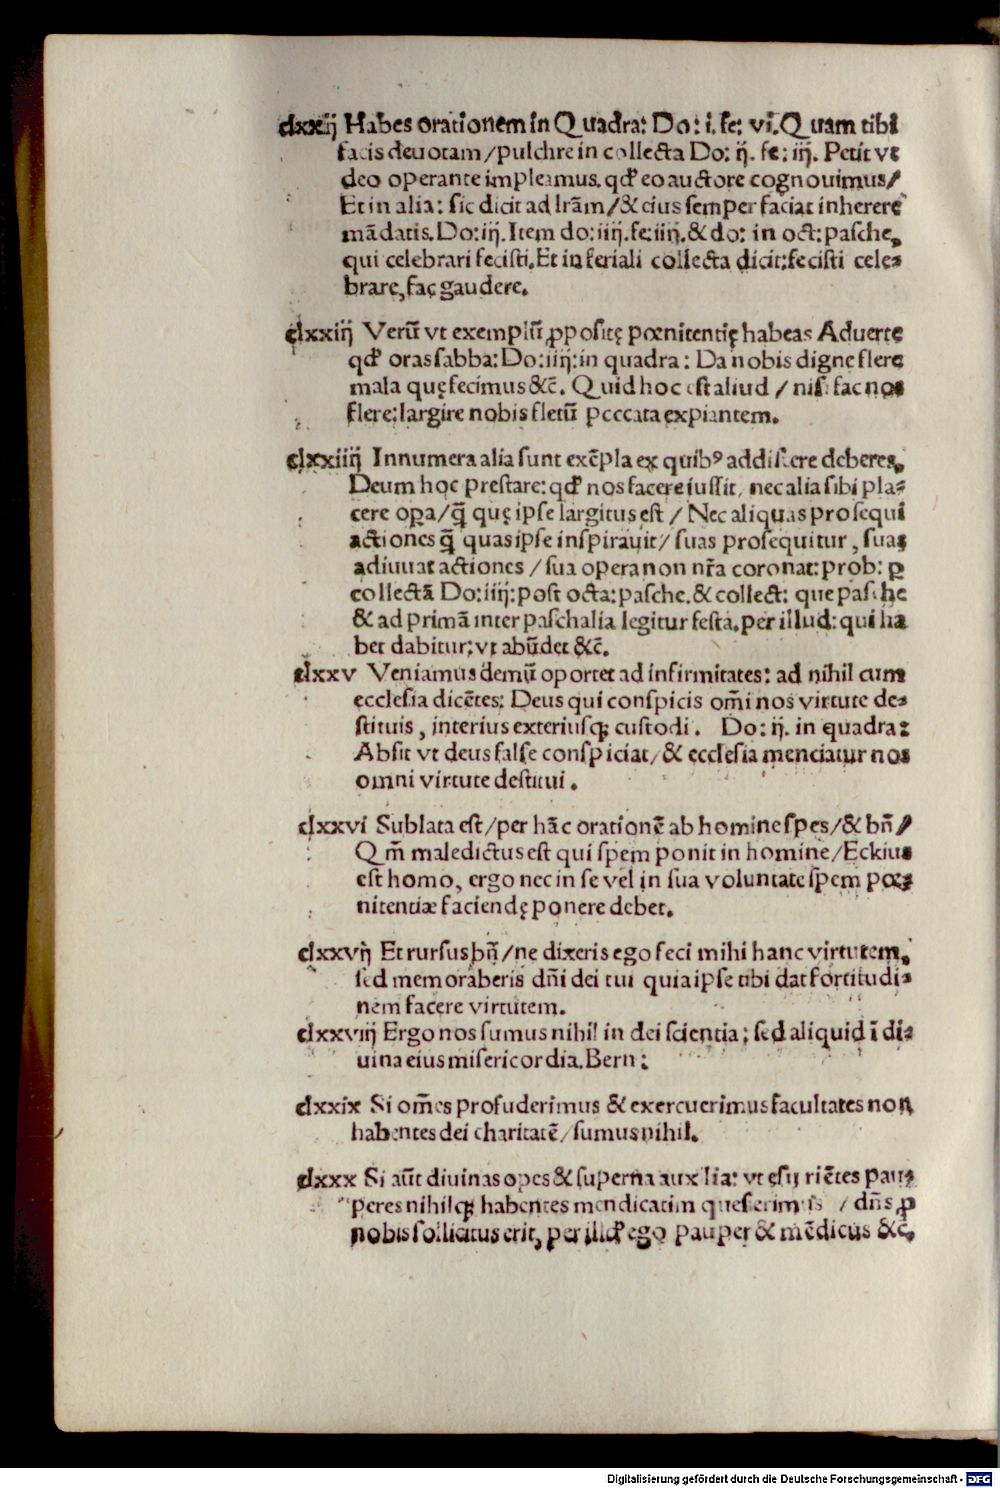 clxxij Habes orationem in Quadra: Do: i. fe: vi. Quam tibi
facis deuotam/pulchre in collecta Do: ij. fe: iij. Petit vt
deo operante impleamus. qđ eo auctore cognouimus/
Et in alia: sic dicit ad lr̄am/& eius semper faciat inherere
mādatis. Do: iij. Item do: iiij. fe: iiij. & do: in oct: pasche,
qui celebrari fecisti. Et in feriali collecta dicit: fecisti cele-
brare, fac gaudere.
clxxiij Verū vt exemplū ꝓpositę pœnitentię habeas Aduerte
qđ oras sabba: Do: iiij: in quadra: Da nobis digne flere
mala quę fecimus &c̄. Quid hoc est aliud / nisi fac nos
flere: largire nobis fletū peccata expiantem.
clxxiiij Innumera alia sunt exēpla ex quibꝰ addiscere deberes,
Deum hoc prestare: qđ nos facere iussit, nec alia sibi pla-
cere oꝑa/q̄ quę ipse largitus est / Nec aliquas prosequi
actiones q̄ quas ipse inspirauit/ suas prosequitur, suas
adiuuat actiones / sua opera non nr̄a coronat: prob: ꝑ
collectā Do: iiij: post octa: pasche. & collect: que pasche
& ad primā inter paschalia legitur festa. per illud: qui ha
bet dabitur: vt abūdet &c̄.
clxxv Veniamus demū oportet ad infirmitates: ad nihil cum
ecclesia dicētes: Deus qui conspicis om̄i nos virtute de-
stituis, interius exteriusqꝫ custodi. Do: ij. in quadra:
Absit vt deus false conspiciat/ & ecclesia menciatur nos
omni virtute destitui.
clxxvi Sublata est/per hāc orationē ab homine spes/& bn̄/
Qm̄ maledictus est qui spem ponit in homine/Eckius
est homo, ergo nec in se vel in sua voluntate spem pœ-
nitentiæ faciendę ponere debet.
clxxvij Et rursus bn̄/ne dixeris ego feci mihi hanc virtutem,
sed memoraberis dn̄i dei tui quia ipse tibi dat fortitudi-
nem facere virtutem.
clxxviij Ergo nos sumus nihil in dei scientia; sed aliquid ī di-
uina eius misericordia. Bern:
clxxix Si om̄es profuderimus & exercuerimus facultates non
habentes dei charitatē/sumus nihil.
clxxx Si aūt diuinas opes & superna auxilia: vt esuriētes pau-
peres nihilqꝫ habentes mendicatim quesierimus / dn̄s ꝓ
nobis sollicitus erit, per illđ ego pauper & mēdicus &c̄,
Digitalisierung gefördert durch die Deutsche Forschungsgemeinschaft - DFG